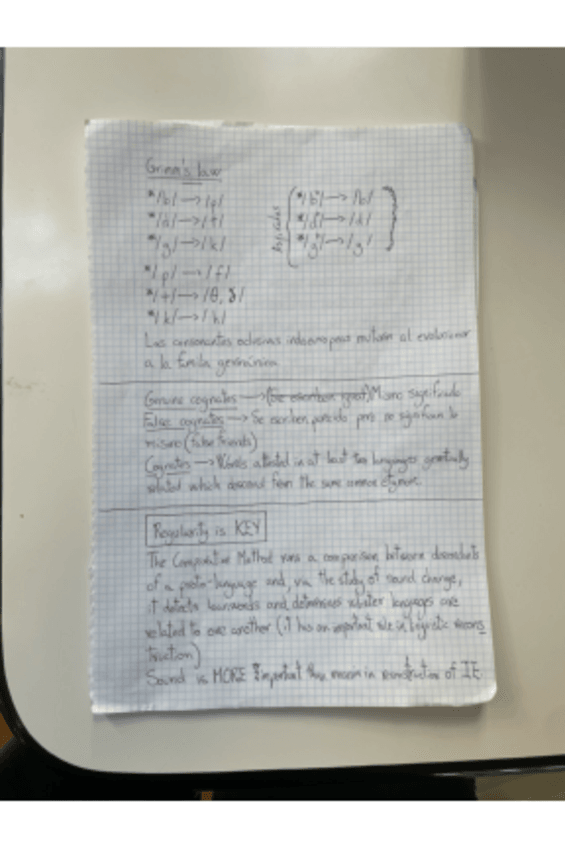 Grimm's law
*/b/ → /p/
*/d/ → /t/
*/g/ → /k/
*/bʰ/ → /b/
*/dʰ/ → /d/
*/gʰ/ → /g/
*/p/ → /f/
*/t/ → /θ, ð/
*/k/ → /h/
Las consonantes oclusivas indoeuropeas mutaron al evolucionar
a la familia germánica
Genuine cognates → (Se escriben igual) Mismo significado
False cognates → Se escriben parecido pero no significan lo
mismo (false friends)
Cognates → Words attested in at least two languages genetically
related which descend from the same common etymon.
Regularity is KEY
The Comparative Method runs a comparison between descendants
of a proto-language and, via the study of sound change,
it detects loanwords and determines whether languages are
related to one another (it has an important role in linguistic recons
truction)
Sound is MORE important than meaning in reconstruction of IE